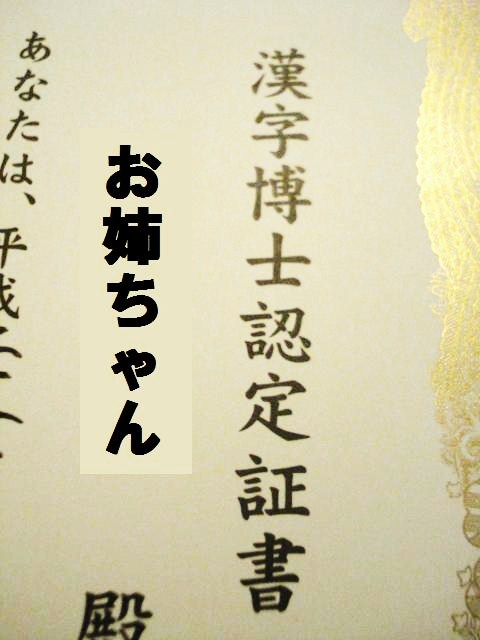 漢字博士認定証書
お姉ちゃん
殿
あなたは、平成二